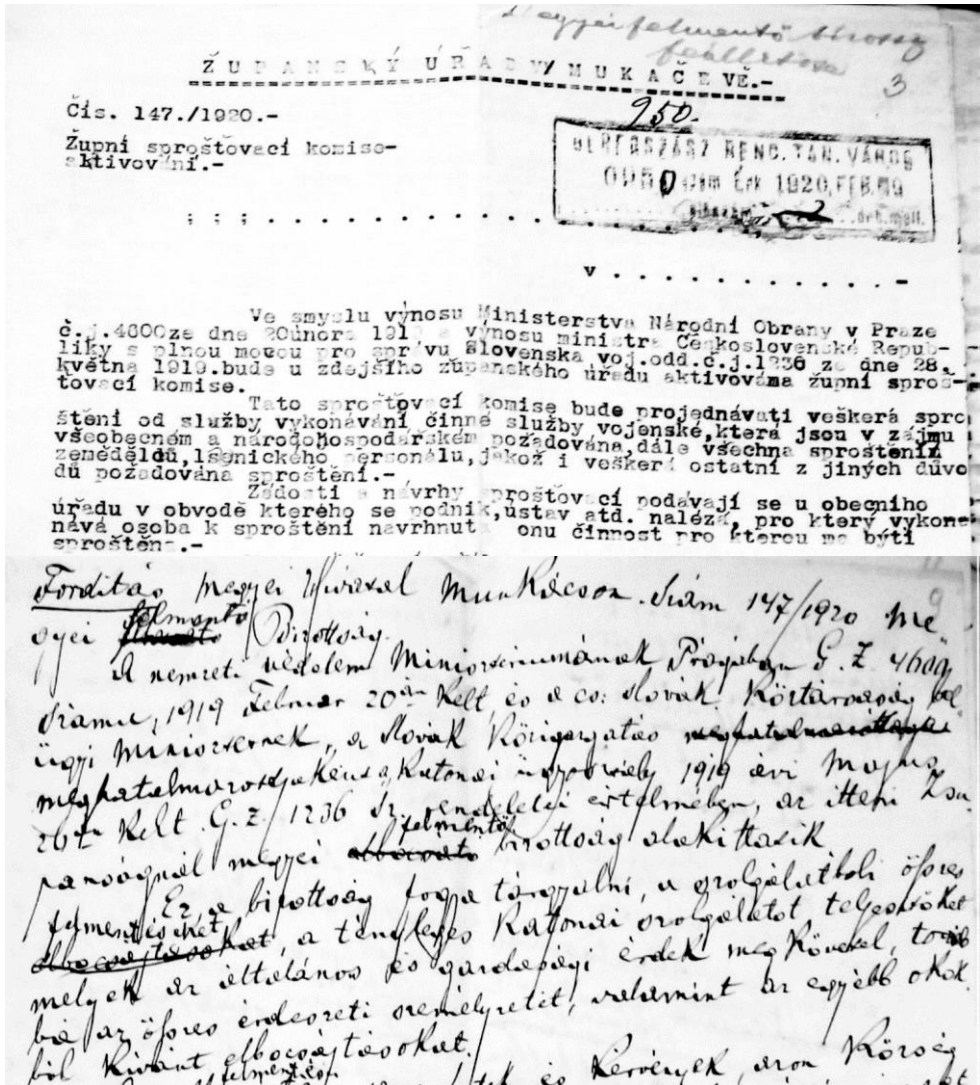 Megyei felmentő bizottság
felállítása
3
ŽUPANSKÝ ÚŘAD V MUKAČEVĚ.-
Čís. 147./1920.-
950.
Župní sprošťovací komise-
aktivování.-
RENC. TAN. VÁROS
0950 Érk 1920. FEB.
; ; ; . . . . . . . . . . . . . . .
v . . . . . . . . . . . . . -
Ve smyslu výnosu Ministerstva Národní Obrany v Praze
č.j.4600ze dne 20února 1919 a výnosu ministra Československé Repub-
liky s plnou mocou pro správu Slovenska voj.odd.č.j.1236 ze dne 28.
května 1919.bude u zdejšího županského úřadu aktivováma župní sproš-
ťovací komise.
Tato sprošťovací komise bude projednávati veškerá spro
štění od služby vykonávání činné služby vojenské,která jsou v zájmu
všeobecném a národohospodářském požadována,dále všechna sproštění
zemědělců,lésnického personálu,jakož i veškerá ostatní z jiných důvo
dů požadována sproštění.-
Žádosti a návrhy sprošťovací podávají se u obecního
úřadu v obvodě kterého se podnik,ústav atd. nalézá, pro který vykone
nává osoba k sproštění navrhnutá onu činnost pro kterou má býti
sproštěna.-
9
Fordítás Megyei Hivatal Munkácson. Szám 147/1920 Me-
gyei felmentő Bizottság.
A nemzeti védelem Miniszteriumának Prágában G. Z. 4600
számu, 1919 Februar 20án kelt, és a cs. slovák Köztársaság bel
ügyi Miniszternek, a slovák Közigazgatás
1919 évi Május
28án kelt G. Z. 1236 sz. rendeletei értelmében, az itteni Zsu
panságnál megyei felmentő bizottság alakittasik
Ez a bizottság fogja tárgyalni, a szolgálatboli összes
felmentéseket, a tényleges Katonai szolgálatot teljesitőket
melyek az általános és gazdasági érdek megkövetel, továb
bá az összes erdészeti személyzetét, valamint az egyébb okok
ból kivánt elbocsajtásokat.
felmentési
és Kérvények, azon Község